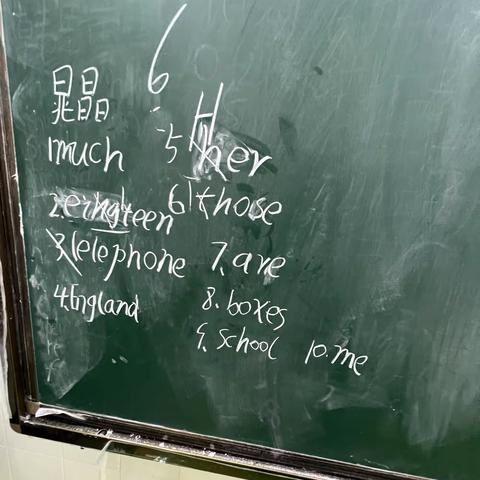 6
晁晶
H
1much
5 her
2.
6 those
3.telephone
7.are
4.England
8.boxes
9.school 10.me